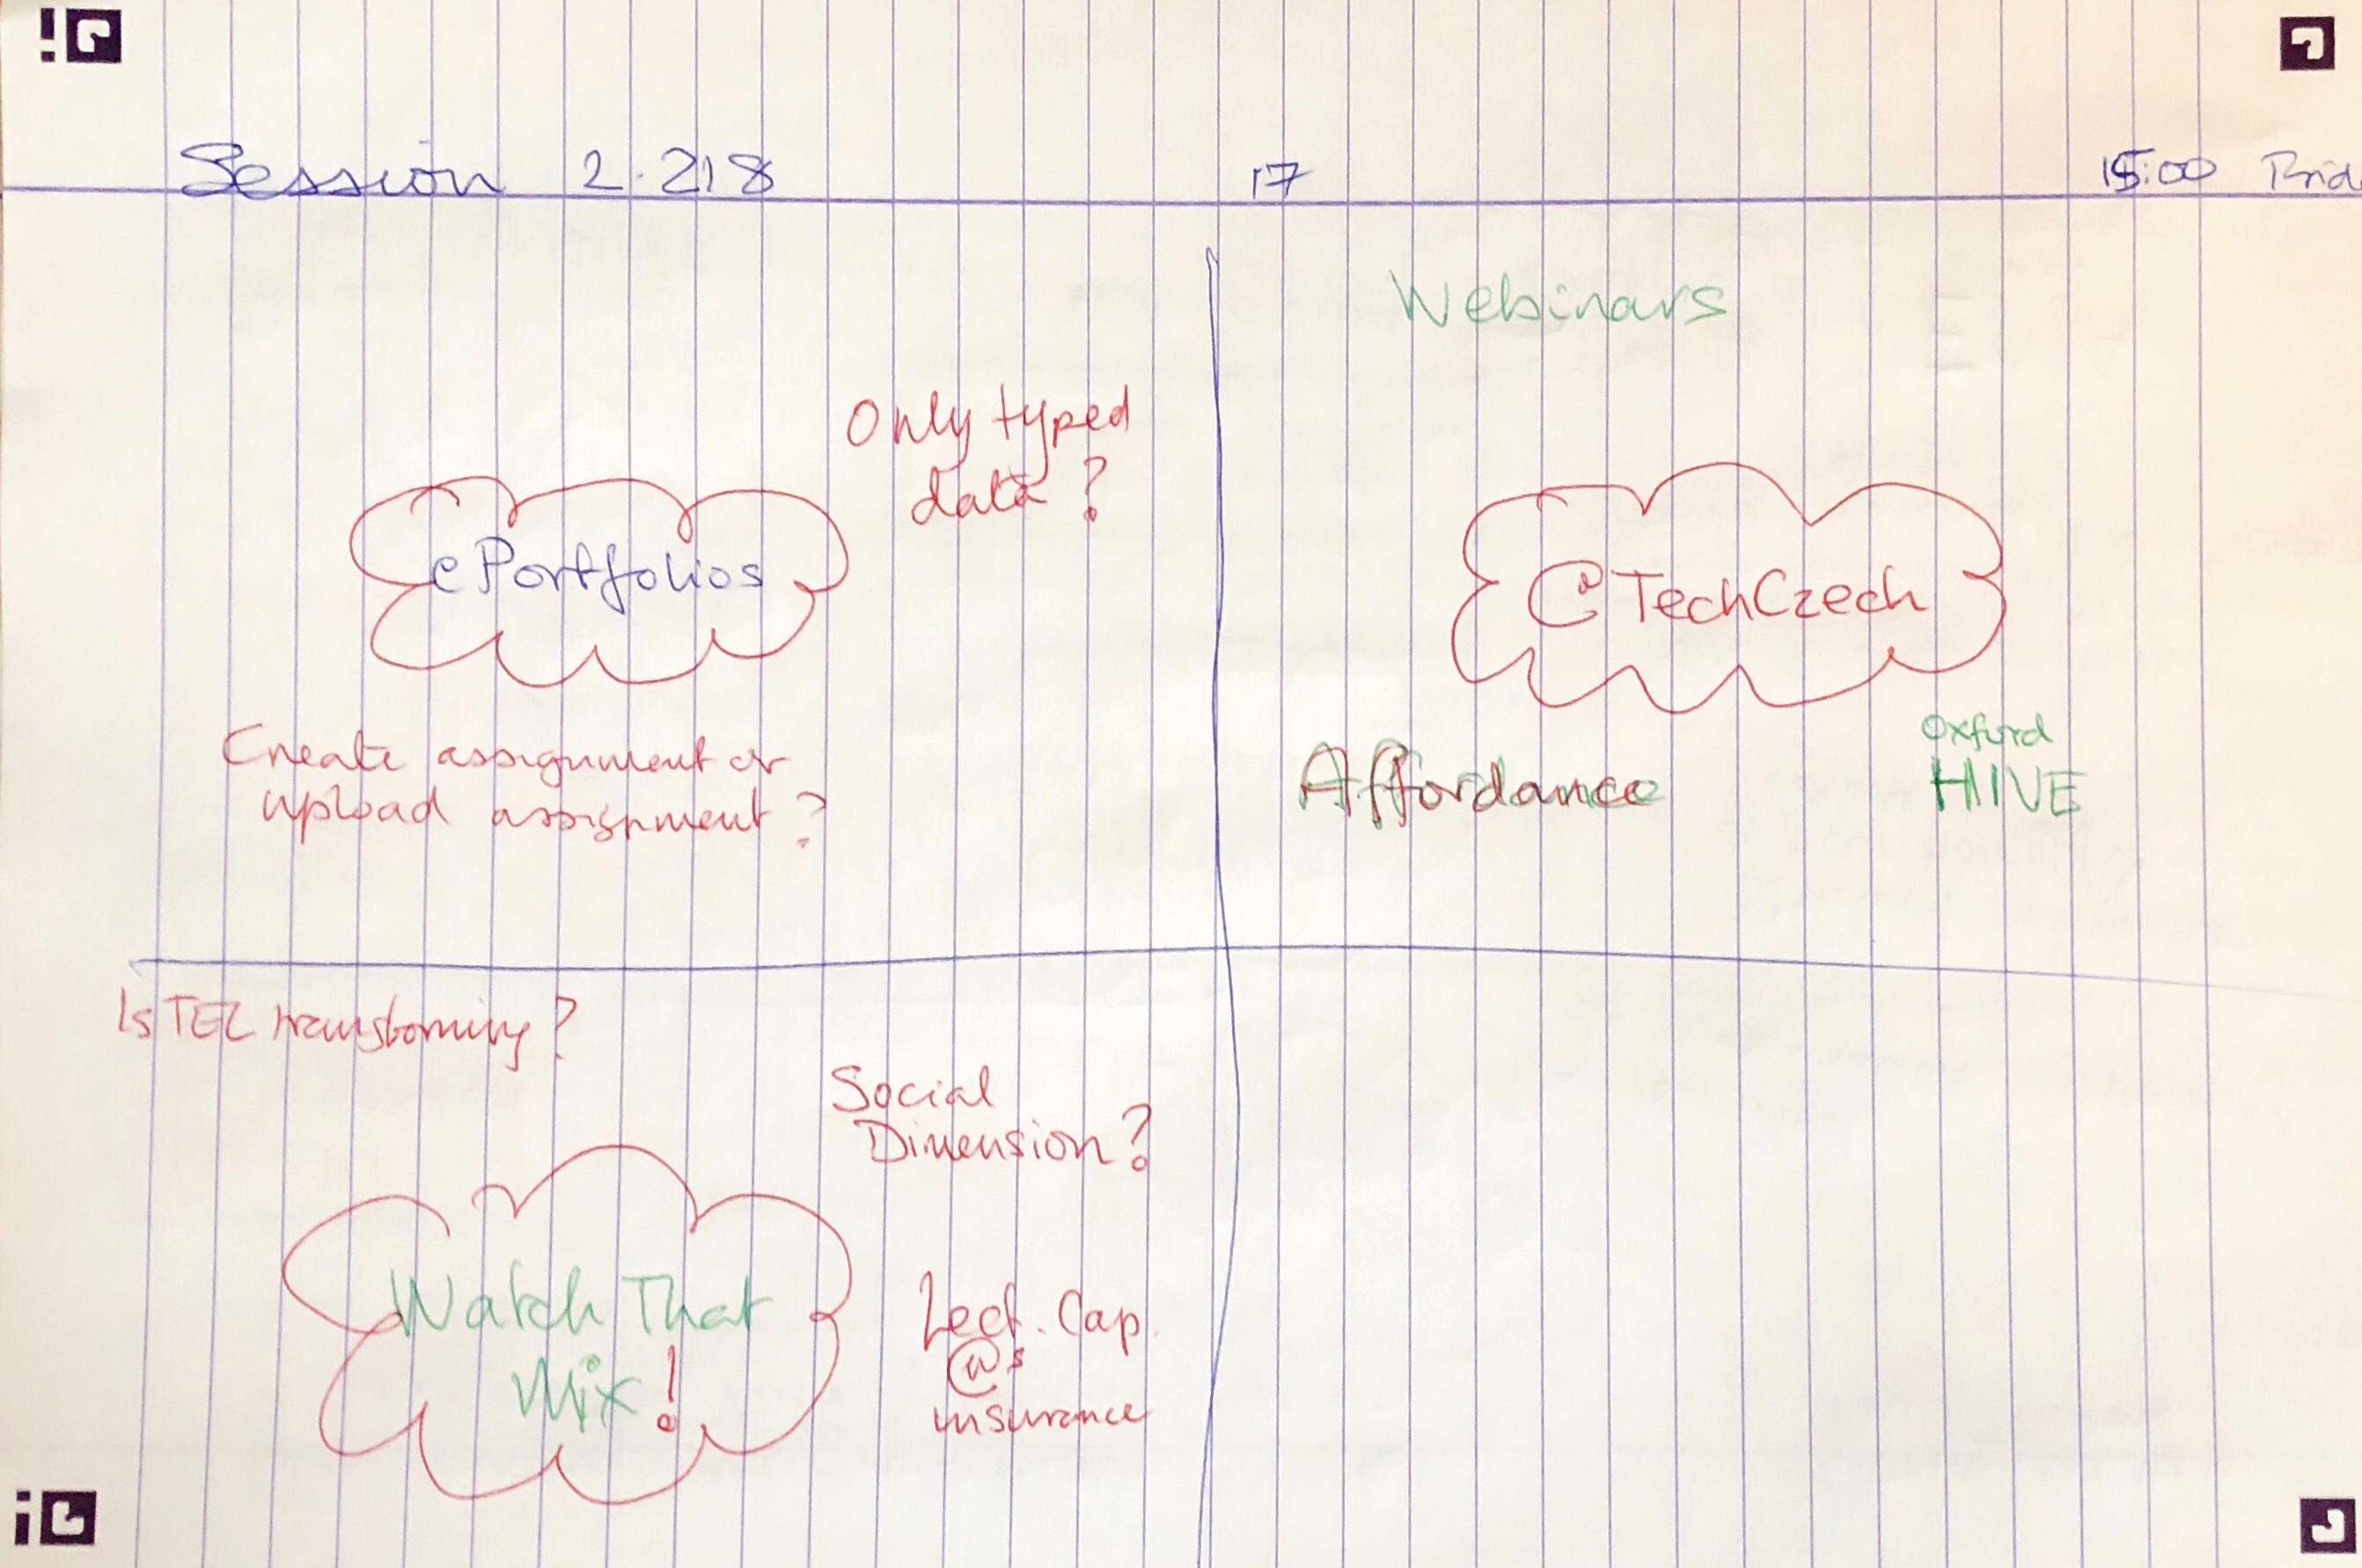 Session 2.218
17
15:00
Only typed
data?
ePortfolios
Create assignment or
upload assignment?
Webinars
@TechCzech
Affordance
Oxford
HIVE
Is TEL transforming?
Social
Dimension?
Watch That
Mix!
Lect. Cap.
insurance